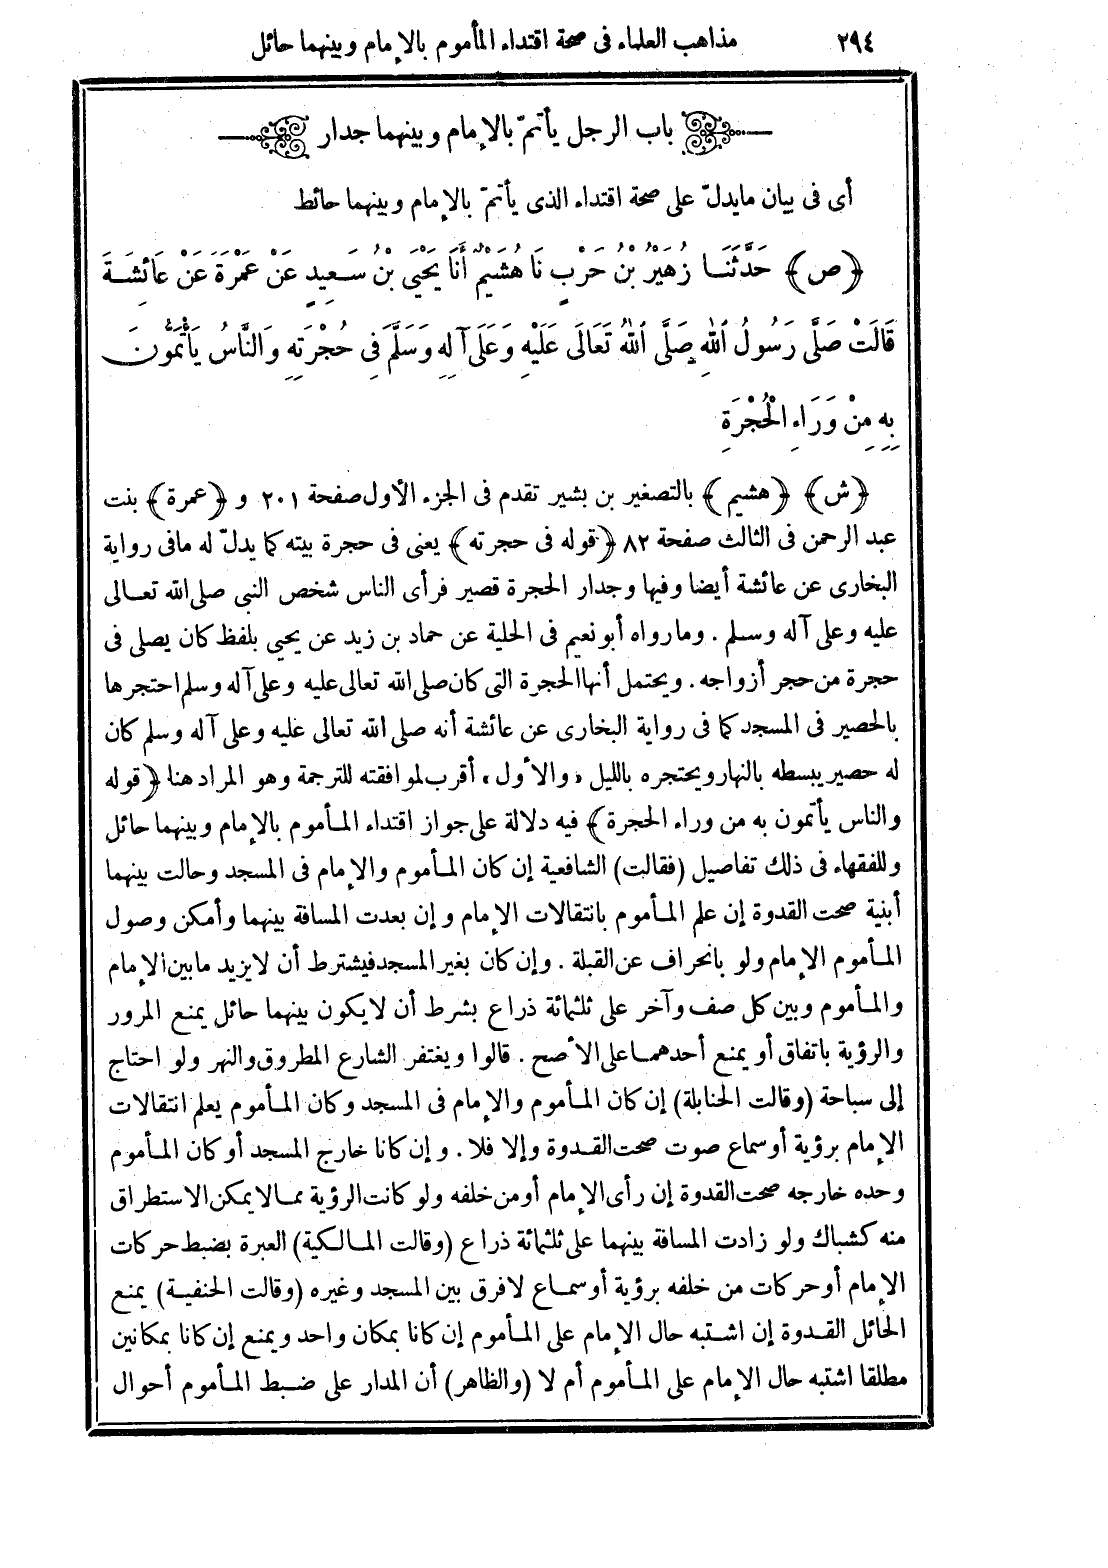 ٢٩٤
مذاهب العلماء فى صحة اقتداء المأموم بالإمام وبينهما حائل
باب الرجل يأتمّ بالإمام وبينهما جدار
أى فى بيان مايدلّ على صحة اقتداء الذى يأتمّ بالإمام وبينهما حائط
﴿ص﴾ حَدَّثَنَا زُهَيْرُ بْنُ حَرْبٍ نَا هُشَيْمٌ أَنَا يَحْيَى بْنُ سَعِيدٍ عَنْ عَمْرَةَ عَنْ عَائِشَةَ
قَالَتْ صَلَّى رَسُولُ اللهِ صَلَّى اللهُ تَعَالَى عَلَيْهِ وَعَلَى آلِهِ وَسَلَّمَ فِى حُجْرَتِهِ وَالنَّاسُ يَأْتَمُّونَ
بِهِ مِنْ وَرَاءِ الْحُجْرَةِ
﴿ش﴾ ﴿هشيم﴾ بالتصغير بن بشير تقدم فى الجزء الأول صفحة ٢٠١ و ﴿عمرة﴾ بنت
عبد الرحمن فى الثالث صفحة ٨٢ ﴿قوله فى حجرته﴾ يعنى فى حجرة بيته كما يدلّ له مافى رواية
البخارى عن عائشة أيضا وفيها وجدار الحجرة قصير فرأى الناس شخص النبى صلى الله تعالى
عليه وعلى آله وسلم . ومارواه أبو نعيم فى الحلية عن حماد بن زيد عن يحيى بلفظ كان يصلى فى
حجرة من حجر أزواجه . ويحتمل أنها الحجرة التى كان صلى الله تعالى عليه وعلى آله وسلم احتجرها
بالحصير فى المسجد كما فى رواية البخارى عن عائشة أنه صلى الله تعالى عليه وعلى آله وسلم كان
له حصير يبسطه بالنهار ويحتجره بالليل «والأول» أقرب لموافقته للترجمة وهو المراد هنا ﴿قوله
والناس يأتمون به من وراء الحجرة﴾ فيه دلالة على جواز اقتداء المأموم بالإمام وبينهما حائل
وللفقهاء فى ذلك تفاصيل (فقالت) الشافعية إن كان المأموم والإمام فى المسجد وحالت بينهما
أبنية صحت القدوة إن علم المأموم بانتقالات الإمام وإن بعدت المسافة بينهما وأمكن وصول
المأموم الإمام ولو بانحراف عن القبلة . وإن كان بغير المسجد فيشترط أن لايزيد مابين الإمام
والمأموم وبين كل صف وآخر على ثلثمائة ذراع بشرط أن لايكون بينهما حائل يمنع المرور
والرؤية باتفاق أو يمنع أحدهما على الأصح . قالوا ويغتفر الشارع المطروق والنهر ولو احتاج
إلى سباحة (وقالت الحنابلة) إن كان المأموم والإمام فى المسجد وكان المأموم يعلم انتقالات
الإمام برؤية أو سماع صوت صحت القدوة وإلا فلا . وإن كانا خارج المسجد أو كان المأموم
وحده خارجه صحت القدوة إن رأى الإمام أو من خلفه ولو كانت الرؤية مما لايمكن الاستطراق
منه كشباك ولو زادت المسافة بينهما على ثلثمائة ذراع (وقالت المالكية) العبرة بضبط حركات
الإمام أو حركات من خلفه برؤية أو سماع لافرق بين المسجد وغيره (وقالت الحنفية) يمنع
الحائل القدوة إن اشتبه حال الإمام على المأموم إن كانا بمكان واحد ويمنع إن كانا بمكانين
مطلقا اشتبه حال الإمام على المأموم أم لا (والظاهر) أن المدار على ضبط المأموم أحوال